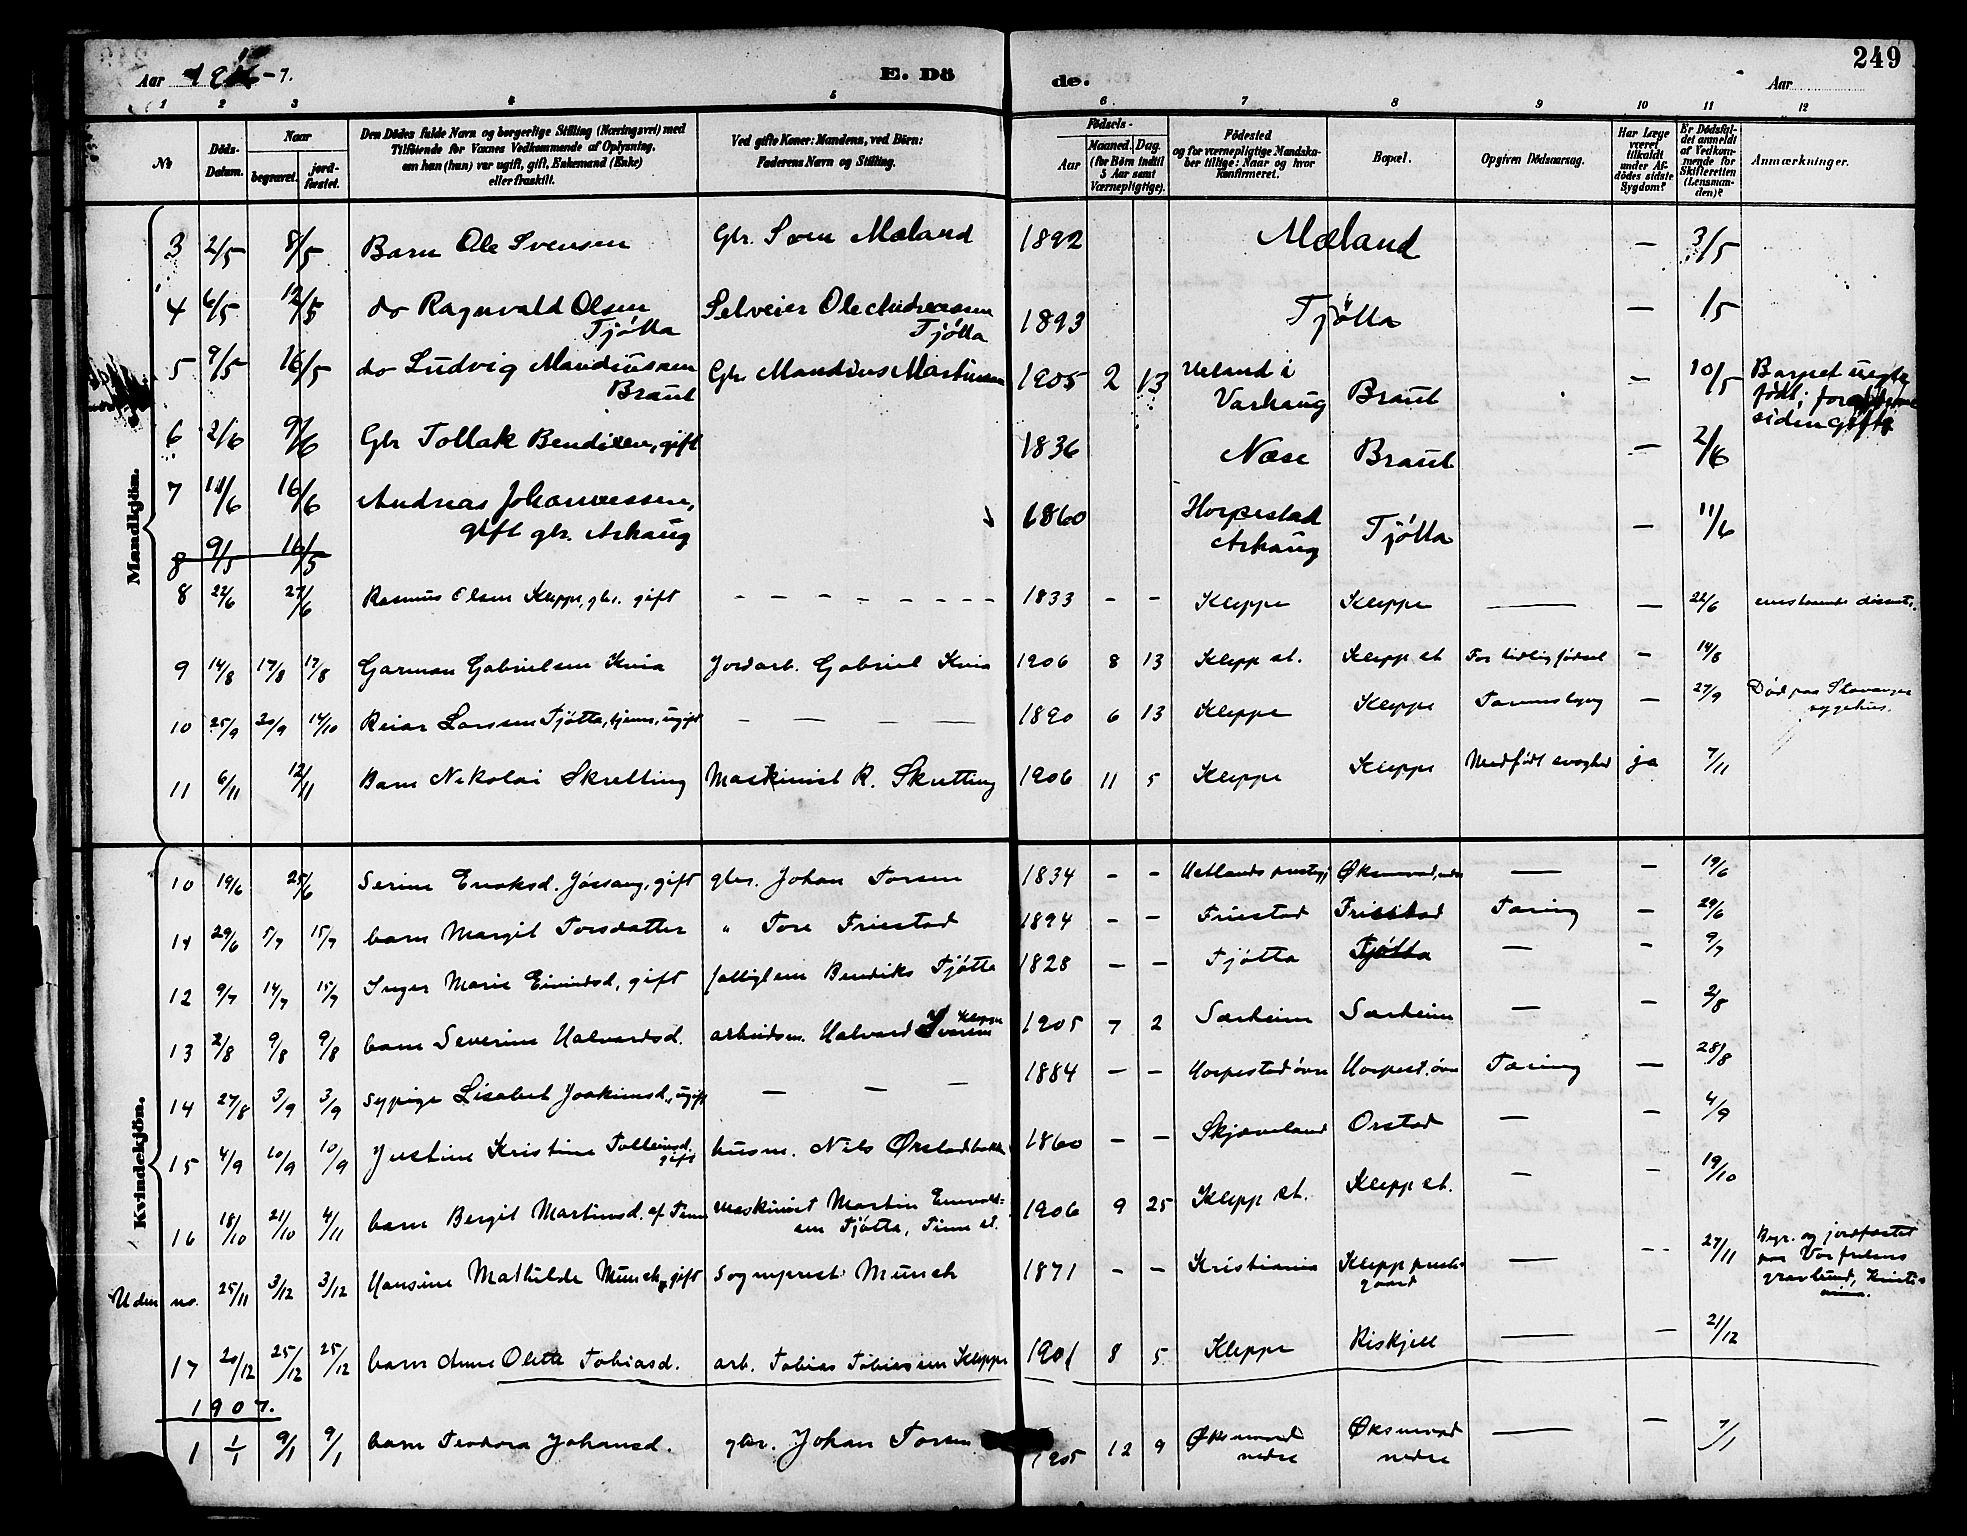 249
Aar 1906-7. E. Dö de. Aar
1 2 3 4 5 6 7 8 9 10 11 12
No Döds-Datum. Naar begravet. jord-fæstet. Den Dödes fulde Navn og borgerlige Stilling (Næringsvei) med Tilföiende for Voxnes Vedkommende af Oplysning, om han (hun) var ugift, gift, Enkemand (Enke) eller fraskilt. Ved gifte Koner: Mandens, ved Börn: Faderens Navn og Stilling. Födsels- Aar Maaned. Dag. (for Börn indtil 5 Aar samt Værnepligtige). Födested og for værnepligtige Mandska-ber tillige: Naar og hvor Konfirmeret. Bopæl. Opgiven Dödsaarsag. Har Læge været tilkaldt under Af-dödes sidste Sygdom? Er Dödsfal-det anmeldt af Vedkom-mende for Skifteretten (Lensman-den)? Anmærkninger.
Mandkjön.
3 2/5 8/5 Barn Ole Svensen Gbr. Sven Mæland 1892 Mæland — 3/5
4 6/5 12/5 do Ragnvald Olsen Tjøtta Selveier Ole Andreassen Tjøtta 1893 Tjøtta — 15
5 9/5 16/5 do Ludvig Mandiussen Braut Gbr Mandius Martinsen 1905 2 13 Ueland i Varhaug Braut — 10/5 Barnet uegte født; forældrene siden gifte
6 2/6 9/6 Gbr Tollak Bendixen, gift 1836 Næse Braut — 2/6
7 11/6 16/6 Andreas Johannessen, gift gbr. Arhaug 1860 Horpestad Arhaug Tjøtta — 11/6
8 9/5 16/5
8 22/6 27/6 Rasmus Olsen Kleppe, gbr. gift – – – – – – – – 1833 – – Kleppe Kleppe — — 22/6
9 14/8 17/8 17/8 Garman Gabrielsen Kvia Jordarb. Gabriel Kvia 1906 8 13 Klepp st. Klepp st For tidlig fødsel — 14/8
10 25/9 30/9 14/10 Reiar Larsen Tjøtta, tjener, ugift — — — — 1890 6 13 Kleppe Kleppe — 27/9 Død paa Stavanger sygehus.
11 6/11 12/11 Barn Nikolai Skretting Maskinist R. Skretting 1906 11 5 Kleppe Kleppe Medfødt svaghed ja 7/11
Kvindekjön.
10 19/6 25/6 Serine Enoksd. Jøssang, gift gbr. Johan Torsen 1834 – – — — 19/6
11 29/6 5/7 15/7 barn Margit Torsdatter " Tore Friestad 1894 – – Friestad Friestad Tæring — 29/6
12 9/7 14/7 15/7 Inger Marie Eivindsd, gift fattiglem Bendiks Tjøtta 1828 – – Tjøtta Tjøtta — — 9/7
13 2/8 9/8 9/8 barn Severine Halvardsd. arbeidsm. Halvard Iversen Kleppe 1905 7 2 Særheim Særheim — — 2/8
14 27/8 3/9 3/9 sypige Lisabet Joakimsd., ugift — — — 1884 – – Horpestad øvre Horpest. øvre Tæring — 28/8
15 4/9 10/9 10/9 Justine Kristine Tolleivsd. gift husm. Nils Ørstadbakk 1860 – – Skjæveland Orstad — — 4/9
16 18/10 21/10 4/11 barn Bergit Martinsd. af Tinn Maskinist Martin Enevold-sen Tjøtta, Tinn st. 1906 9 25 Klepp st. Klepp st. — — 19/10
Uden no. 25/11 3/12 3/12 Hansine Mathilde Munch, gift Sogneprest Munch 1871 – – Kristiania Klepp preste-gaard — — 27/11 Begr. og jordfæstet paa Vor frelsers gravlund, Kristi-ania.
17 20/12 25/12 25/12 barn Anne Olette Tobiasd. arb. Tobias Tobiassen Kleppe 1901 8 5 Kleppe Riskjell — — 21/12
1907.
1 1/1 9/1 9/1 barn Teodora Johansd. gbr. Johan Torsen 1905 12 9 Øksnevad nedre Øksnevad nedre — — 7/1